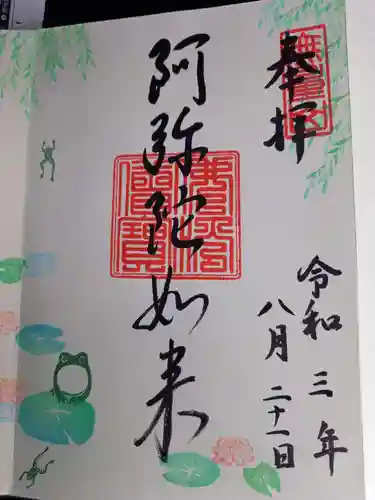 奉拝
令和三年
八月二十一日
阿弥陀如来